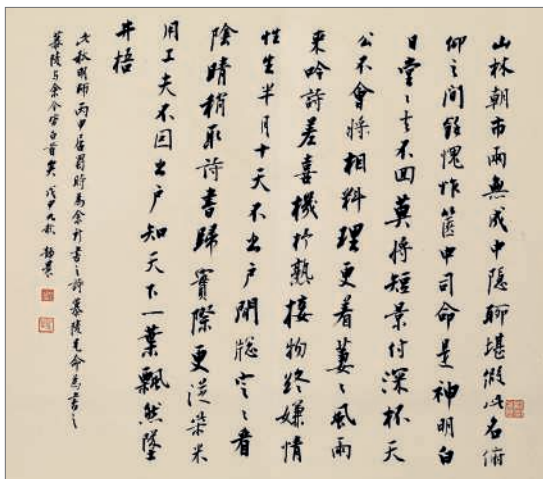 山林朝市兩無成中隱聊堪徼此名俯
仰之間餘愧怍篋中司命是神明白
日堂〻去不回莫將短景付深杯天
公不會將相料理更着萋〻風雨
來吟詩差喜機杼熟接物終嫌情
性生半月十天不出戶閒牕空〻看
陰晴稍取詩書歸實際更從柴米
用工夫不因出戶知天下一葉飄然墜
井梧
此秋明師丙甲居蜀時為余行書之詩慕陵兄命為書之
慕陵与余今皆白首矣戊申九秋 静農